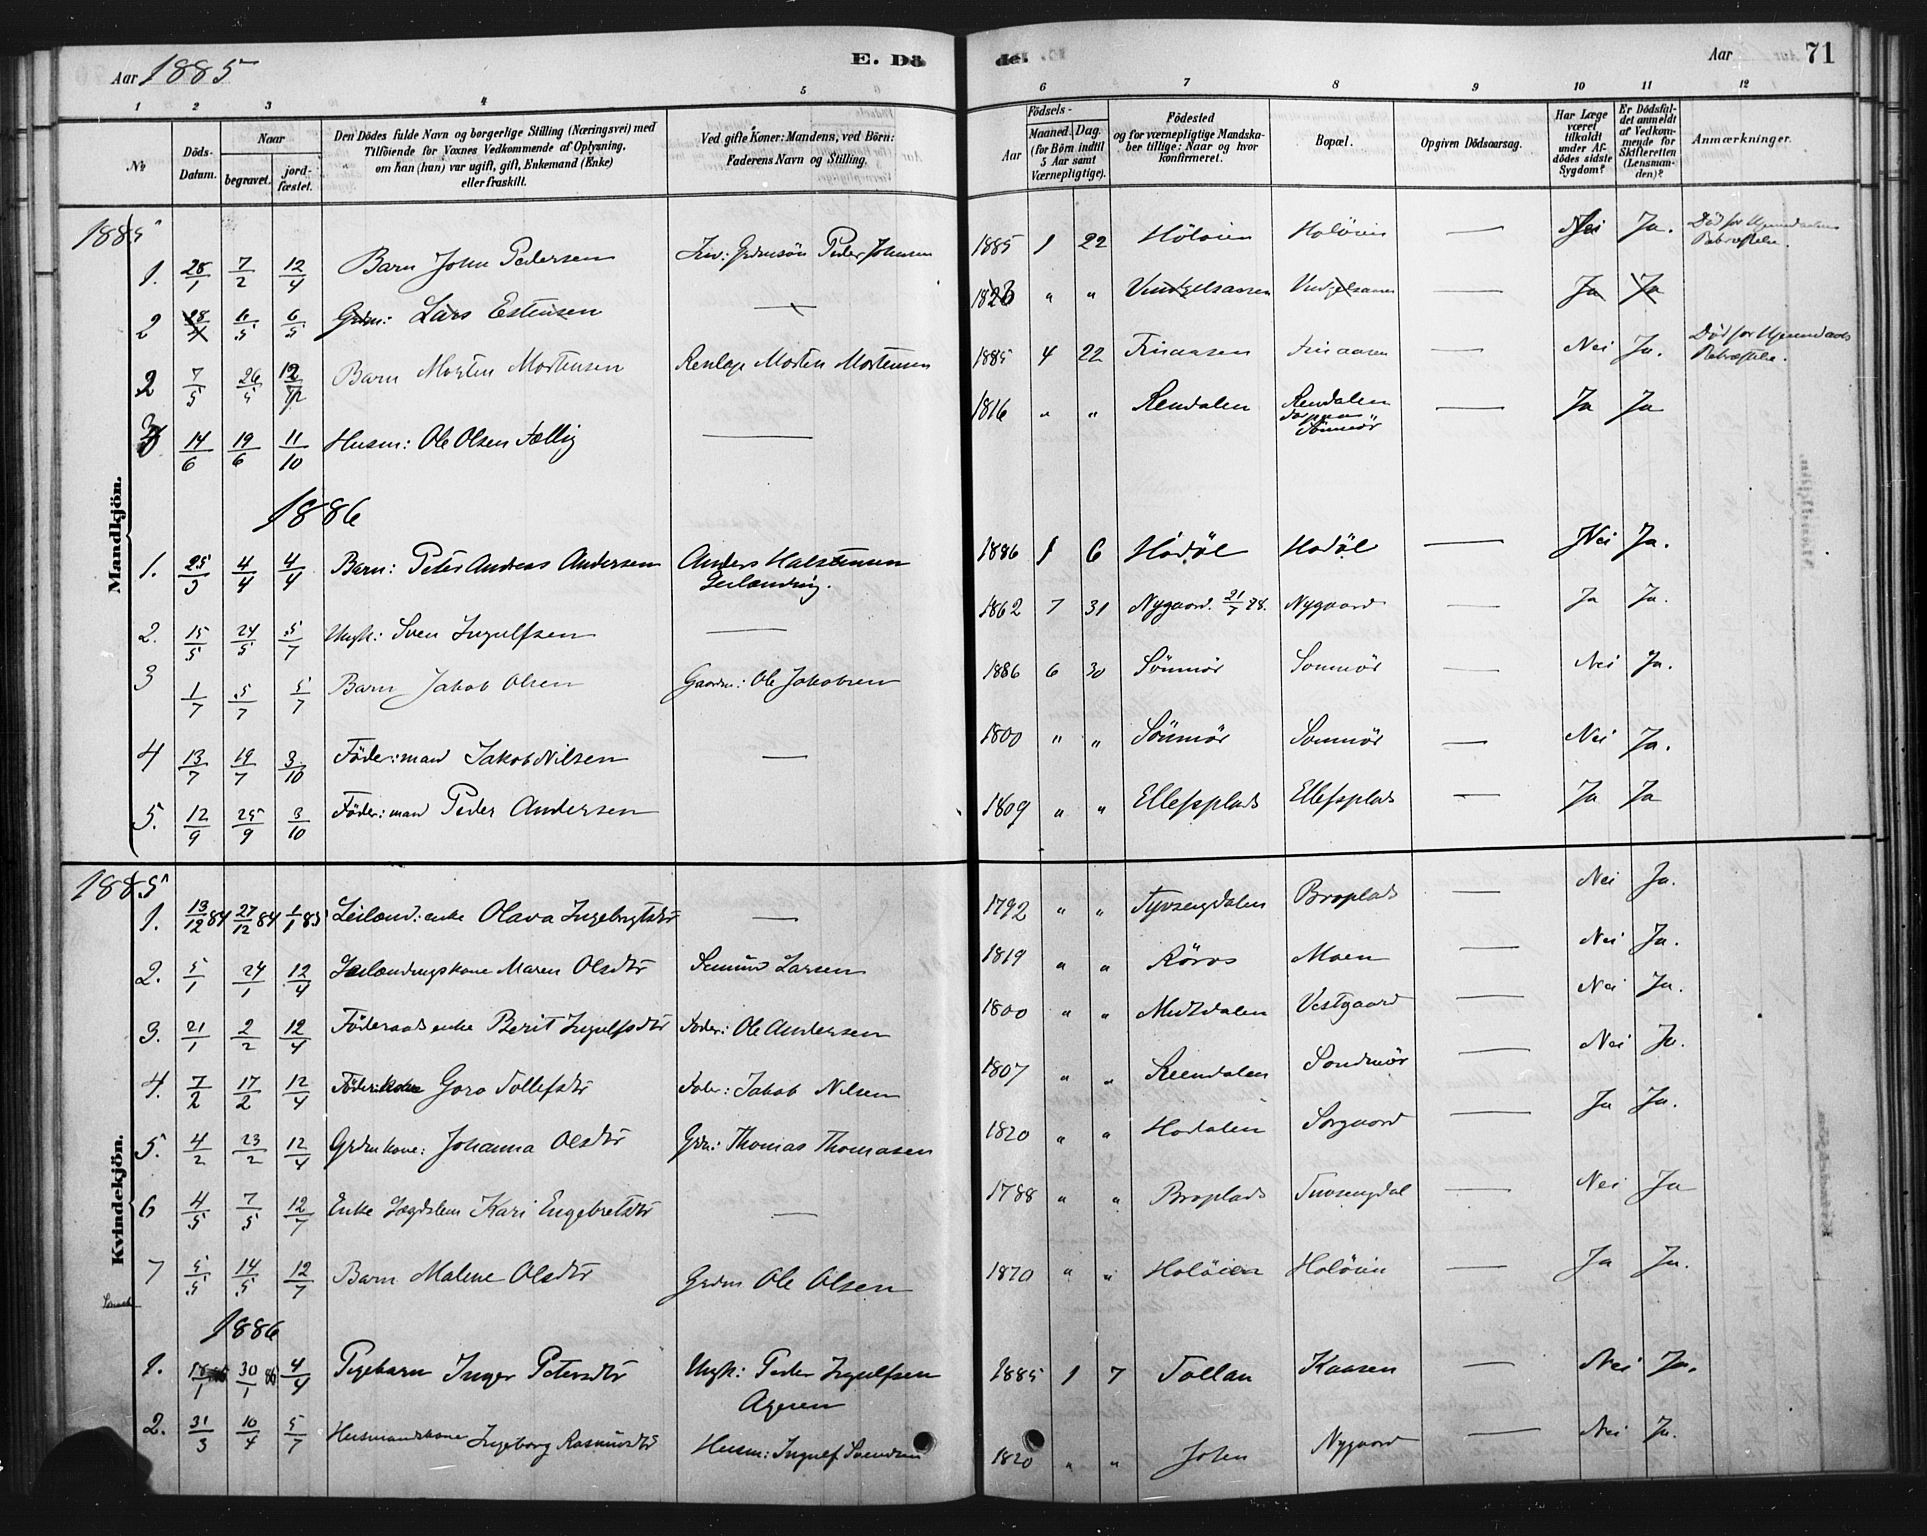 Aar 1885
E. Dö
de.
Aar
71
1 2 3 4 5 6 7 8 9 10 11 12
№
Döds-Datum.
Naar
begravet.
jord-fæstet.
Den Dödes fulde Navn og borgerlige Stilling (Næringsvei) med
Tilföiende for Voxnes Vedkommende af Oplysning,
om han (hun) var ugift, gift, Enkemand (Enke)
eller fraskilt.
Ved gifte Koner: Mandens, ved Börn:
Faderens Navn og Stilling.
Födsels-
Aar
Maaned. Dag.
(for Börn indtil
5 Aar samt
Værnepligtige).
Födested
og for værnepligtige Mandska-
ber tillige: Naar og hvor
konfirmeret.
Bopæl.
Opgiven Dödsaarsag.
Har Læge
været
tilkaldt
under Af-
dödes sidste
Sygdom?
Er Dödsfal-
det anmeldt
af Vedkom-
mende for
Skifteretten
(Lensman-
den)?
Anmærkninger.
Mandkjön.
1885
1. 28/1 7/2 12/4 Barn John Pedersen Peder Johnsen 1885 1 22 Holöien Holöien — Nei Ja.
2 6/5 Grdm: Lars Estensen — " " Ja Ja
2 7/5 26/5 Barn Morten Mortensen Morten Mortensen 1885 4 22 Finaasen Finaasen — Nei Ja.
3 14/6 19/6 11/10 Husm: Ole Olsen — 1816 " " Rendalen Rendalen — Ja Ja
1886
1. 25/3 4/4 4/4 Barn: Peter Andreas Andersen Anders Halstensen Leilænding. 1886 1 6 Hodöl Hodöl — Nei Ja.
2. 15/5 24/5 5/7 Ungk: Sven Ingulfsen — 1862 7 31 Nygaard. 21/7 78. Nygaard — Ja Ja.
3 1/7 5/7 5/7 Barn Jakob Olsen Gaardm: Ole Jakobsen 1886 6 30 Sönmör Sonmör — Nei Ja.
4 13/7 19/7 3/10 Föder: mand Jakob Nilsen — 1800 " " Sönmör Sonmör — Nei Ja.
5. 12/9 25/9 3/10 Föder: mand Peder Andersen 1809 " " Ellefsplads Ellefsplads — Ja Ja
Kvindekjön.
1885
1. 13/12 84 27/12 84 1/1 85 Leilænd: enke Olava Ingebrigtsdtr — 1792 " " Tyvsengdalen Broplads — Nei Ja.
2. 5/1 24/1 12/4 Leilændingskone Maren Olsdtr Larsen 1819 " " Röros Moen — Nei Ja.
3. 21/1 2/2 12/4 Föderaadsenke Berit Ingulfsdtr Foder: Ole Andersen 1800 " " Midtdalen Vestgaard — Nei Ja.
4. 7/2 17/2 12/4 Föder:kone Goro Tollefsdtr Foder: Jakob Nilsen 1807 " " Reendalen Sondmör — Nei Ja.
5. 4/2 23/2 12/4 Grdmkone: Johanna Olsdtr Grdm: Thomas Thomasen 1820 " " Hodalen Sorgaard — Ja Ja.
6 4/5 7/5 12/7 Enke Lægdslem Kari Engebretsdtr — 1788 " " Broplads Tuvsengdal — Nei Ja
7 5/5 14/5 12/7 Barn Malene Olsdtr Grdm Ole Olsen 1870 " " Holöien Holöien — Ja Ja.
1886
1. 30/1 86 4/4 Pigebarn Inger Petersdtr Ungk: Peder Ingulfsen Ageren 1885 1 7 Tollan Kaasen — Nei Ja.
2. 31/3 10/4 5/7 Husmandskone Ingeborg Rasmusdtr Husm: Ingulf Svendsen 1820 " " Nygaard — Nei Ja.